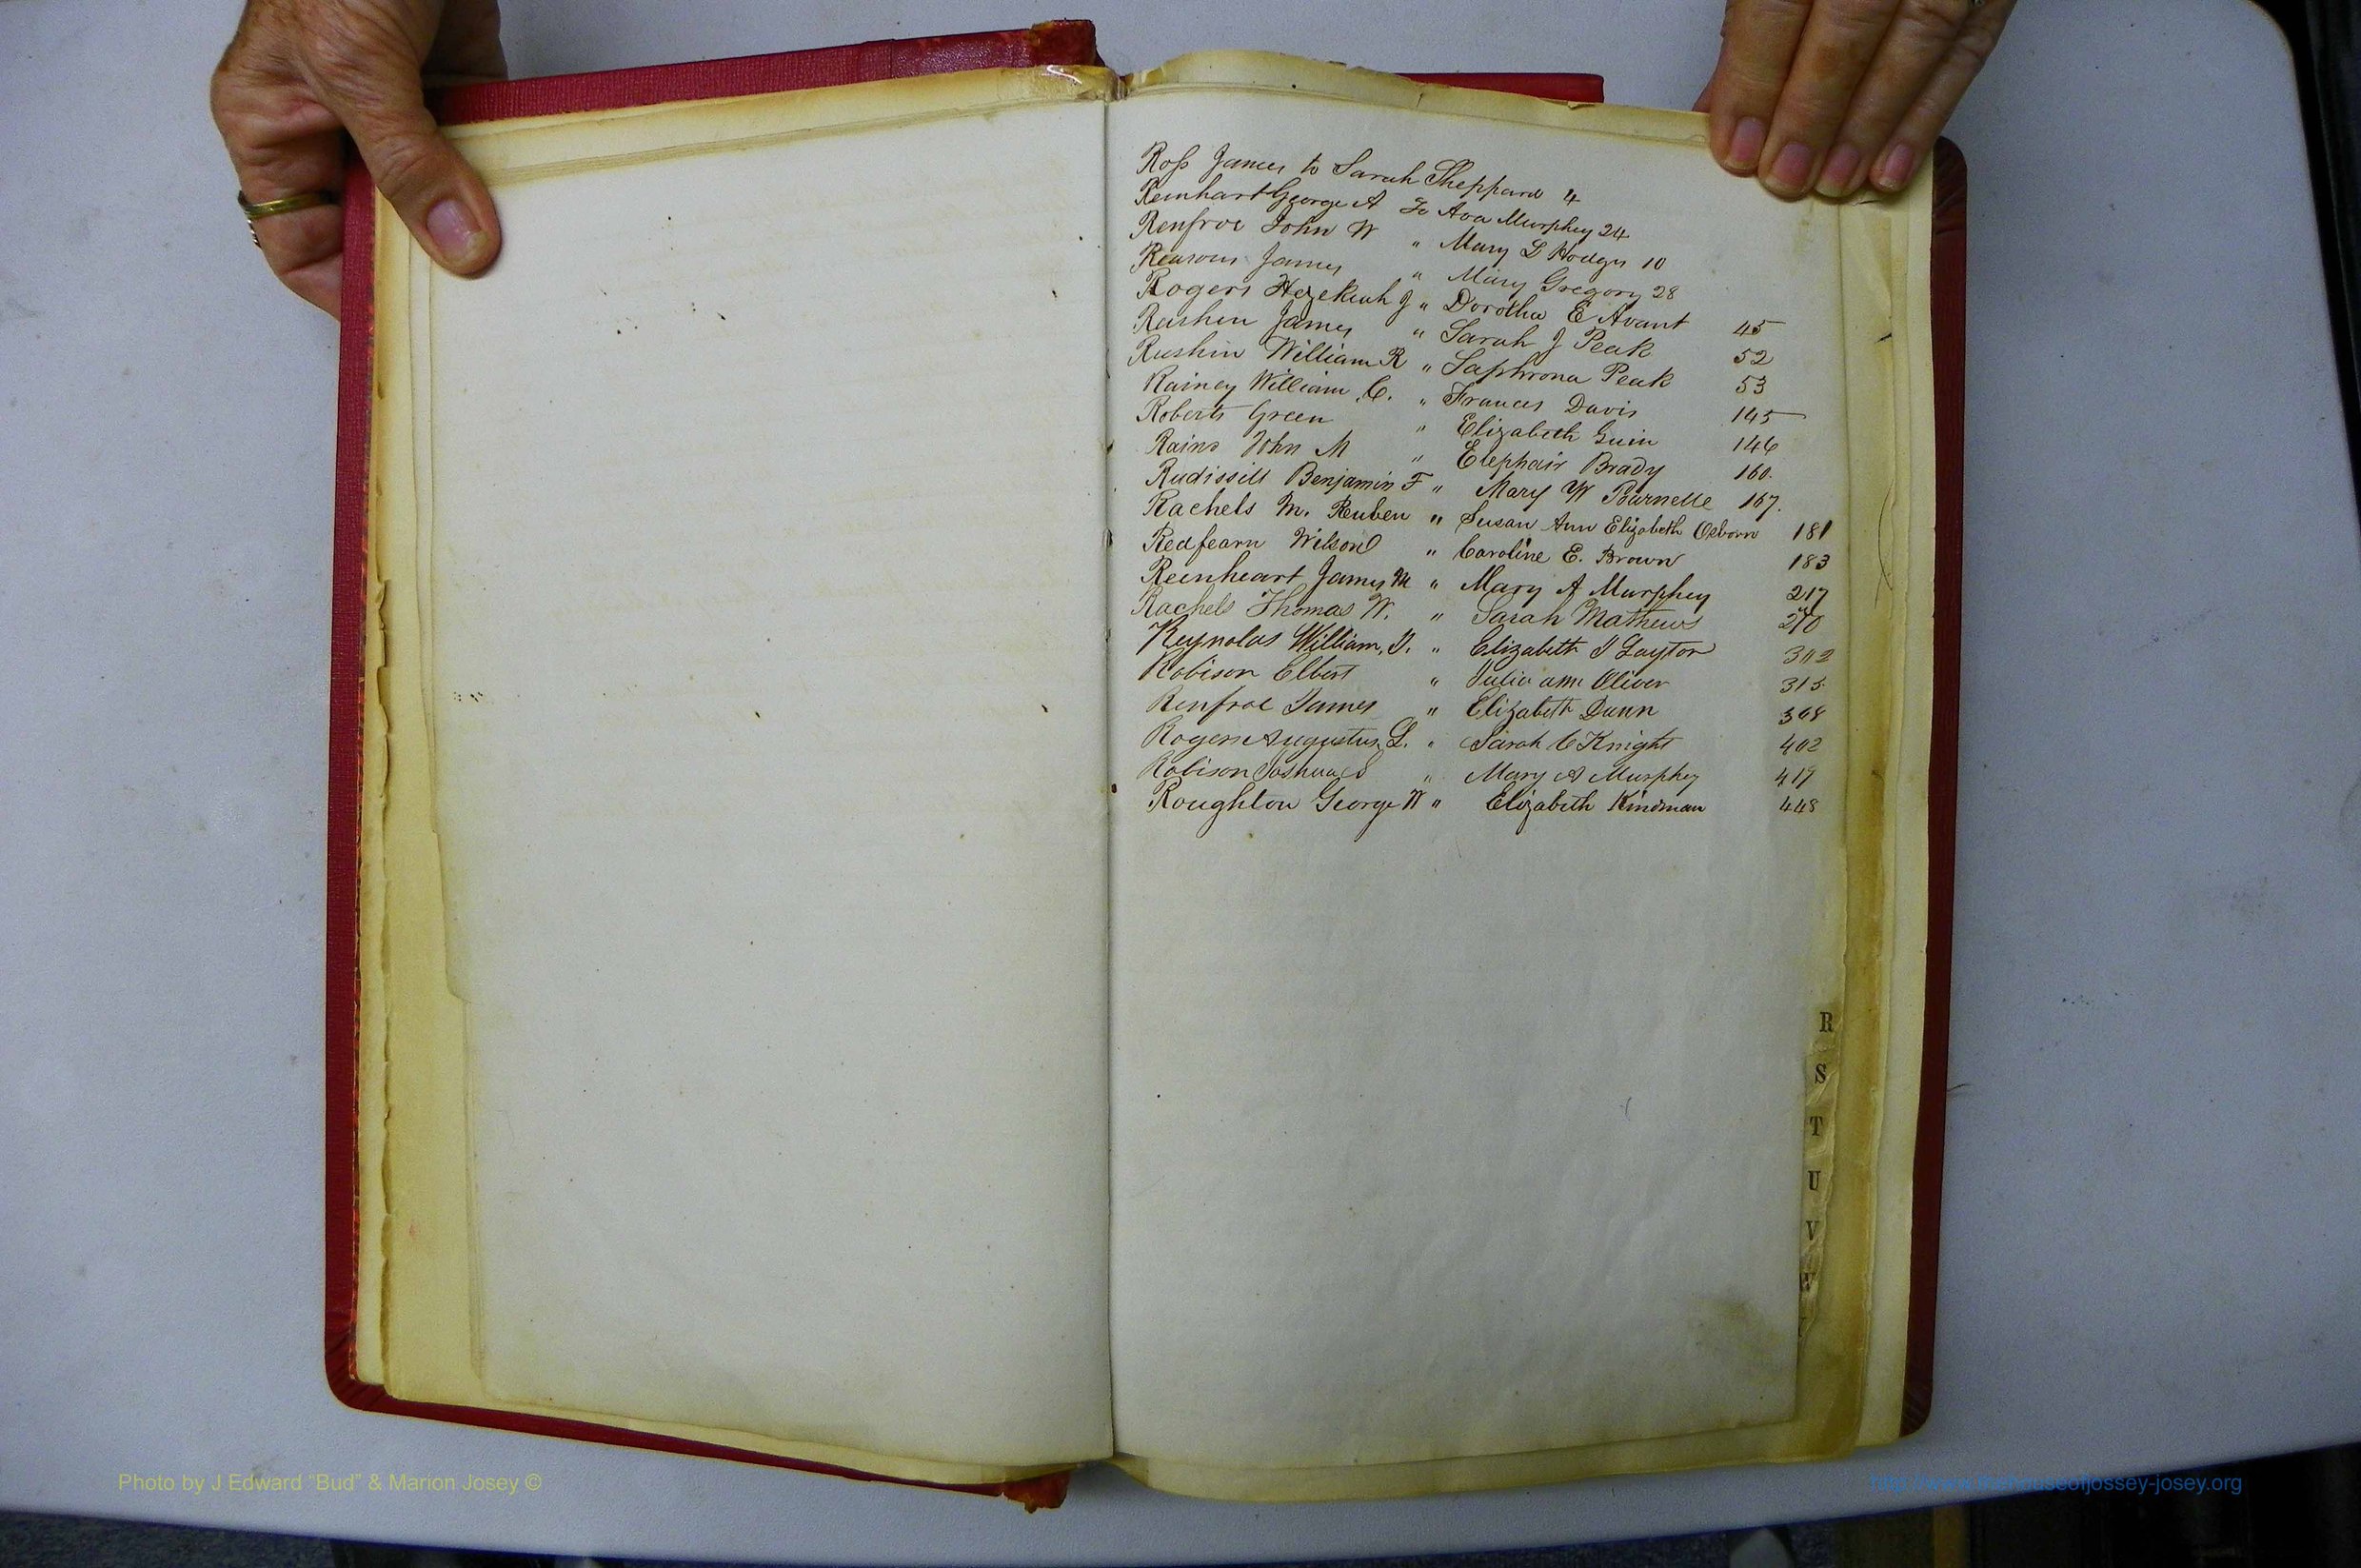 Ross James to Sarah Sheppard 4
Reinhart George A To Ava Murphey 24
Renfroe John W " Mary L Hodges 10
Reasons James " Mary Gregory 28
Rogers Hezekiah J " Dorotha E Avant 45
Rushin James " Sarah J Peak 52
Rushin William R " Saphrona Peak 53
Rainey William C. " Frances Davis 145
Roberts Green " Elizabeth Guin 146
Rains John M " Elephair Brady 160.
Rudissill Benjamin F " Mary W Pournelle 167.
Rachels M. Reuben " Susan Ann Elizabeth Osborn 181
Redfearn Wilson " Caroline E. Brown 183
Reenheart James M " Mary A Murphey 217
Rachels Thomas W. " Sarah Mathews 270
Reynolds William, D. " Elizabeth J Layton 302
Robison Elbert " Julia ann Oliver 315
Renfroe James " Elizabeth Dunn 368
Rogers Augustus L. " Sarah C Knight 402
Robison Joshua S " Mary A Murphey 419
Roughton George W " Elizabeth Kindman 448
R
S
T
U
V
W
Photo by J Edward "Bud" & Marion Josey ©
http://www.thehouseofjossey-josey.org